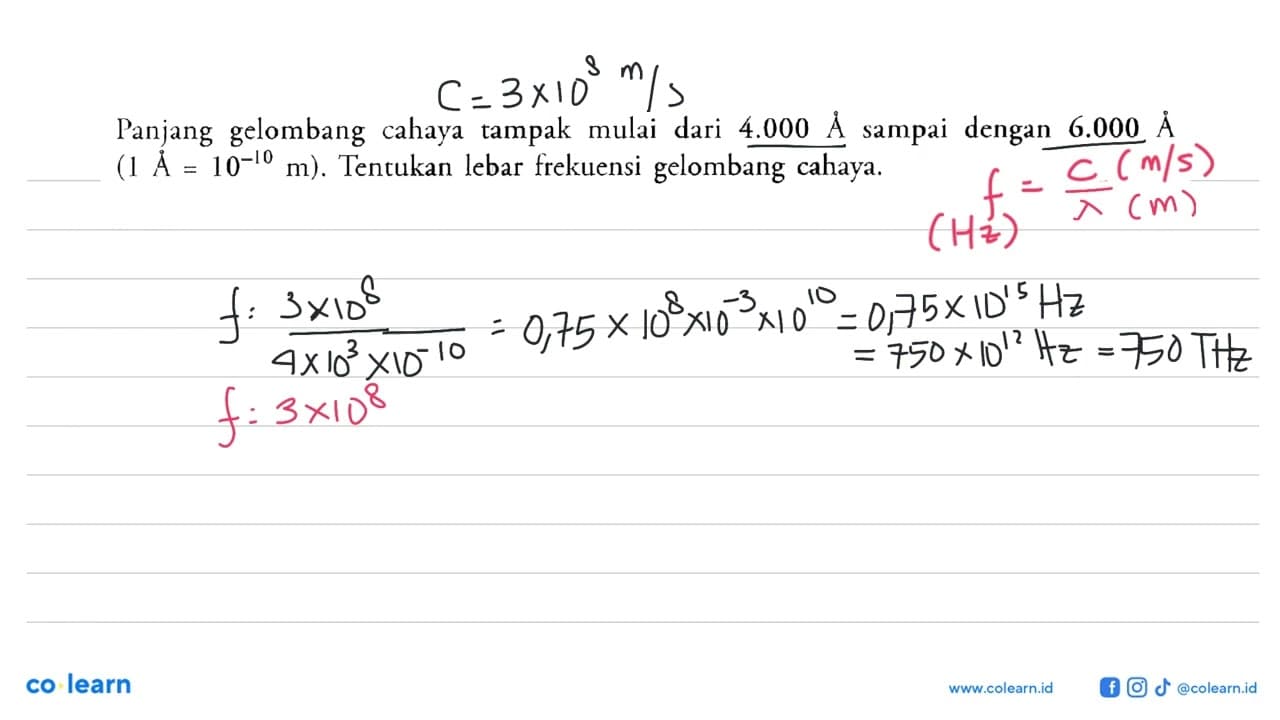 C = 3×10⁸ m/s
Panjang gelombang cahaya tampak mulai dari 4.000 Å sampai dengan 6.000 Å
(1 Å = 10⁻¹⁰ m). Tentukan lebar frekuensi gelombang cahaya.
f = C (m/s) / λ (m)
(Hz)
f: 3×10⁸ / 4×10³×10⁻¹⁰ = 0,75×10⁸×10⁻³×10¹⁰ = 0,75×10¹⁵ Hz
= 750×10¹² Hz = 750 THz
f: 3×10⁸
co learn
www.colearn.id
@colearn.id